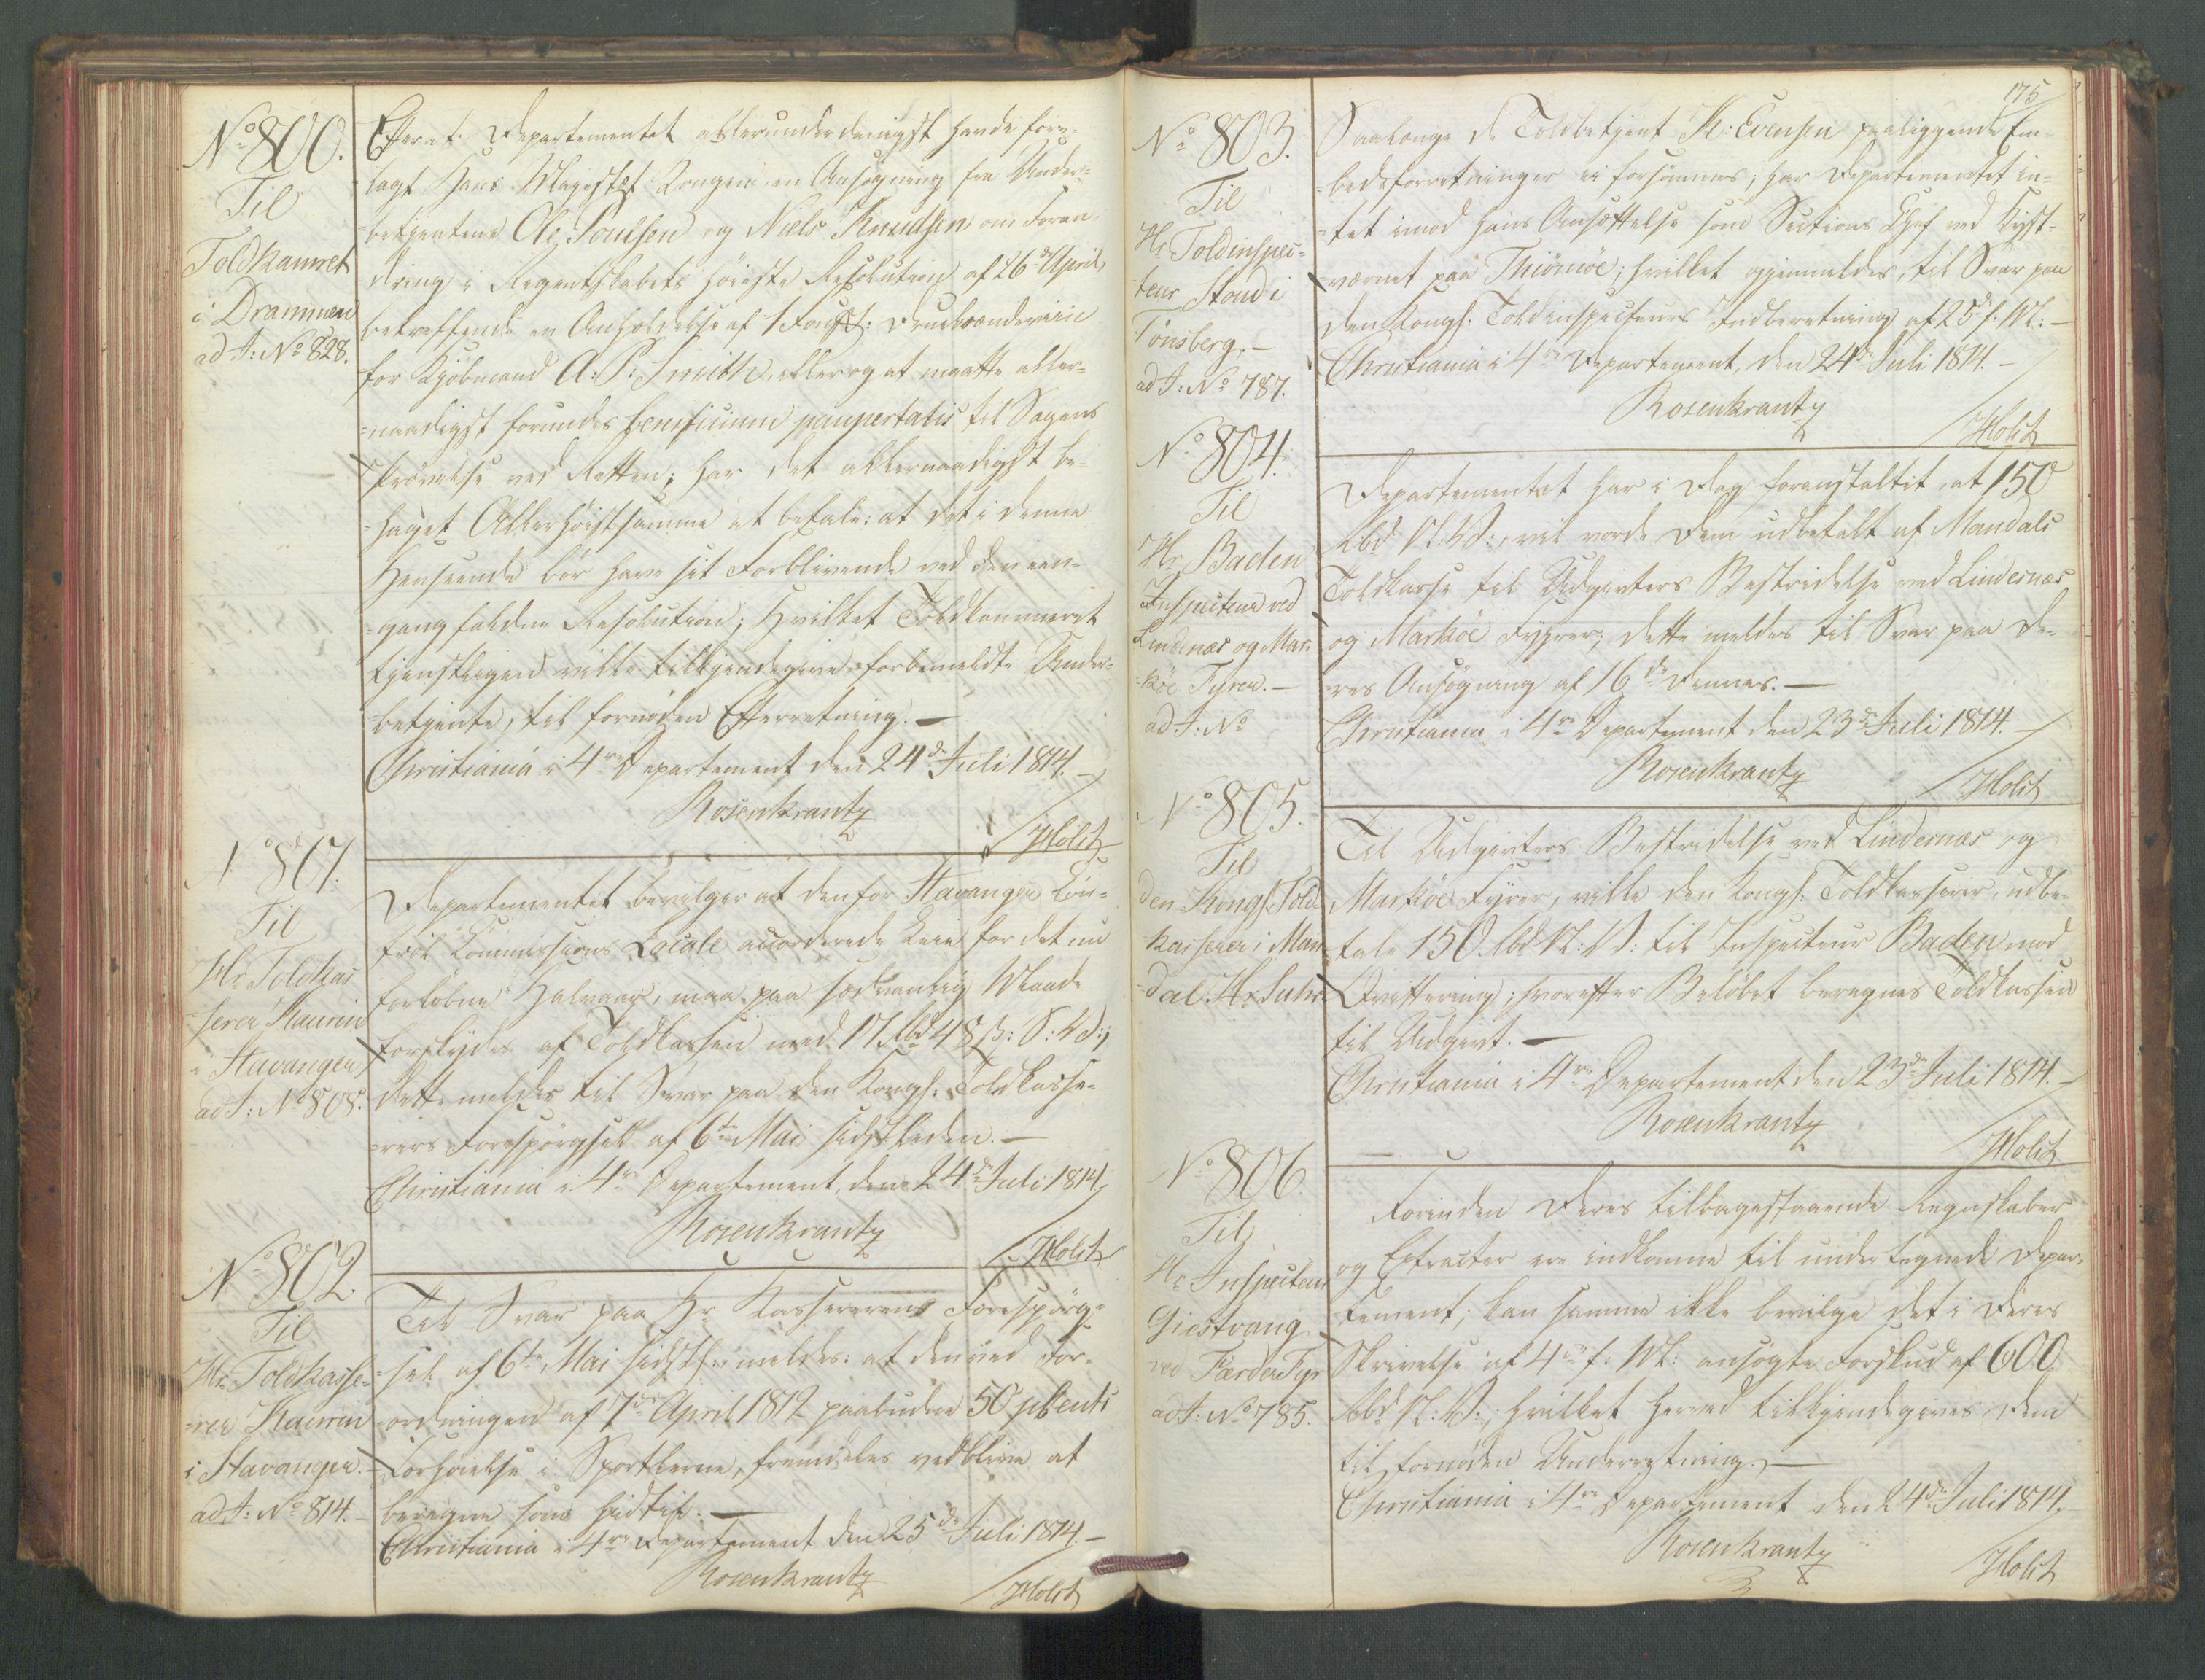 No 800.
Til
Toldkamret
i Drammen
ad J: No 828.
Efterat Departementet allerunderdanigst havde fore-
lagt Hans Majestæt Kongen en Ansøgning fra Under-
betjentene Ole Poulsen og Niels Knudsen om Foran-
dring i Regentskabets høieste Resolution af 26de April,
betreffende en Anholdelse af 1
for Kjøbmand A: P: Smith, eller og at maatte aller-
naadigst forundes beneficium paupertatis til Sagens
Prøvelse ved Retten; har det allernaadigst be-
haget Allerhøistsamme at befale: at det i denne
Henseende bør have sit Forblivende ved den een-
gang faldne Resolution; Hvilket Toldkammeret
tjenstligen ville tilkjendegive forbemeldte Under-
betjente, til fornøden Efterretning. —
Christiania i 4de Departement den 24de Juli 1814. —
Rosenkrantz
/Holst
No 801.
Til
Hr Toldkas
serer Kaurin
i Stavanger
ad J: No 808.
Departementet bevilger at den for Stavanger Con-
trol Commissions Locale accorderede Leie for det nu
forløbne Halvaar, maa paa sædvanlig Maade
forskydes af Toldkassen med 17 Rbd 48 ß: S: V:;
Dette meldes til Svar paa den Kongl. Toldkasse-
rers Forespørgsel af 6te Mai sidstleden. —
Christiania i 4de Departement, den 24de Juli 1814,
Rosenkrantz
/Holst
No 802.
Til
Hr Toldkasse-
rer Kaurin
i Stavanger. —
ad J: No 814. —
Til Svar paa Hr Kassererens Forespørg-
sel af 6te Mai sidstl: meldes: at den ved For-
ordningen af 7de April 1812 paabudne 50 pCents
Forhøielse i Sportlerne, fremdeles vedblive at
beregne som hidtil. —
Christiania i 4de Departement den 25de Juli 1814. —
Rosenkrantz
/Holst
175
No 803.
Til
Hr Toldinspec-
teur Stoud i
Tønsberg. —
ad J: No 787.
Saalænge de Toldbetjent K: Evensen paaliggende Em-
bedsforretninger ei forsømmes, har Departementet in-
tet imod hans Ansættelse som Sections Chef ved Kyst-
værnet paa Thiömöe; hvilket gjenmeldes, til Svar paa
den Kongl. Toldinspecteurs Indberetning af 25de f: M: —
Christiania i 4de Departement, den 24de Juli 1814. —
Rosenkrantz
/Holst
No 804.
Til
Hr Baden
Inspecteur ved
Lindesnæs og Mar-
køe Fyrer. —
ad J: No
Departementet har i Dag foranstaltet, at 150
Rbd N: V:, vil vorde Dem udbetalt af Mandals
Toldkasse til Udgivters Bestridelse ved Lindesnæs
og Markøe Fyrer; dette meldes til Svar paa De-
res Ansøgning af 16de dennes. —
Christiania i 4de Departement den 23de Juli 1814. —
Rosenkrantz
/Holst
No 805.
Til
den Kongl. Told-
kasserer i Man-
dal. Hr Suhr
Til Udgivters Bestridelse ved Lindesnæs og
Markøe Fyrer, ville den Kongl: Toldkasserer, udbe-
tale 150 Rbd N: V: til Inspecteur Baden mod
Qvittering; hvorefter Beløbet beregnes Toldkassen
til Udgivt. —
Christiania i 4de Departement den 23de Juli 1814. —
Rosenkrantz
/Holst
No 806.
Til
Hr Inspecteur
Giestvang
ved Færder Fyr
ad J: No 785.
Forinden Deres tilbagestaaende Regnskaber
og Extracter ere indkomne til undertegnede Depar-
tement, kan samme ikke bevilge det i Deres
Skrivelse af 4de f: M: ansøgte Forskud af 600
Rbd N: V:; hvilket herved tilkjendegives Dem
til fornøden Underretning. —
Christiania i 4de Departement den 24de Juli 1814. —
Rosenkrantz
/Holst